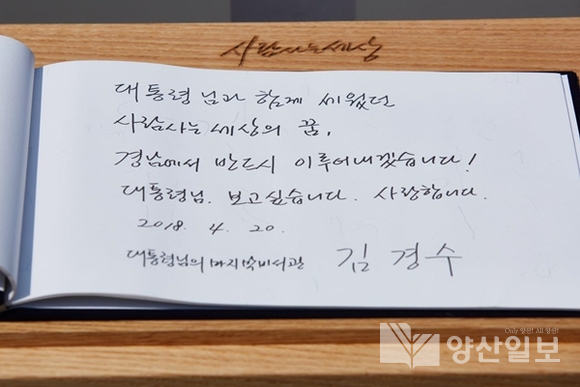 사람사는세상
대통령님과 함께 세웠던
사람사는 세상의 꿈,
경남에서 반드시 이루어내겠습니다!
대통령님. 보고싶습니다. 사랑합니다.
2018. 4. 20.
대통령님의 마지막비서관 김 경 수
Only 양산! All 양산!
양산일보